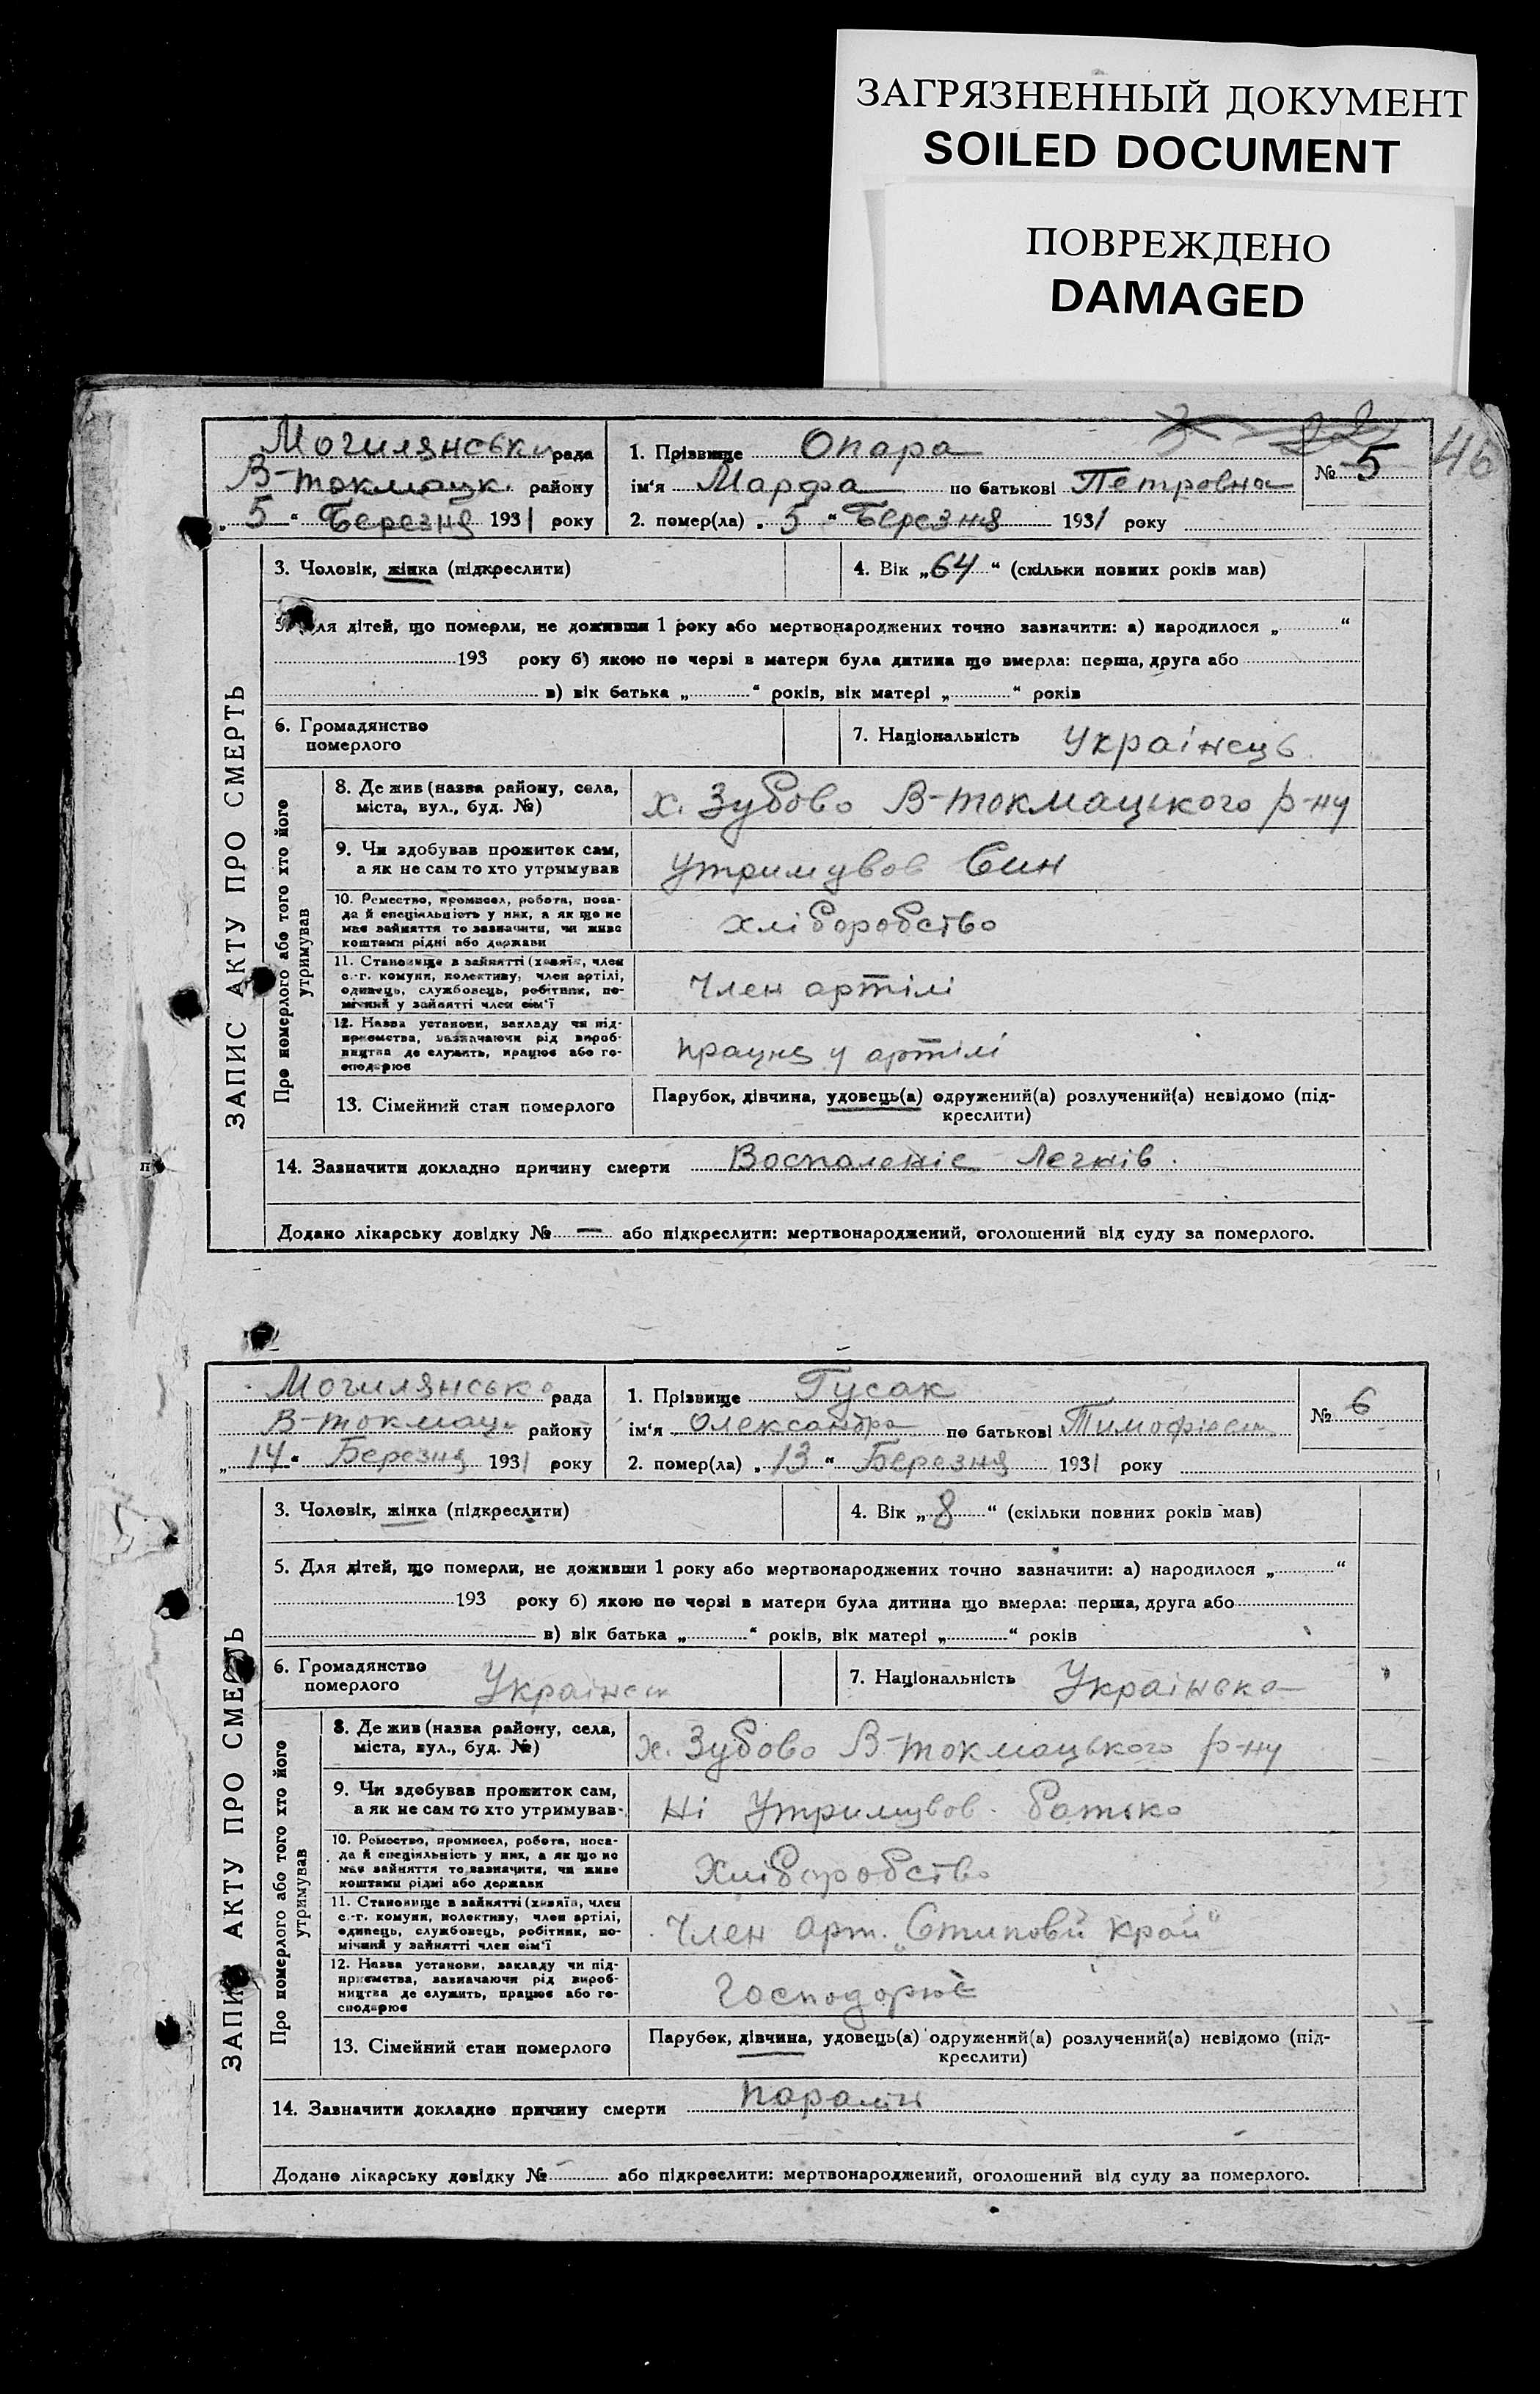 ЗАГРЯЗНЕННЫЙ ДОКУМЕНТ
SOILED DOCUMENT
ПОВРЕЖДЕНО
DAMAGED
46
ЗАПИС АКТУ ПРО СМЕРТЬ
Могилянська рада
В-токмацк. району
„5“ Березня 1931 року
1. Прізвище Опара
ім'я Марфа по батькові Петровна
2. помер(ла) „5“ Березня 1931 року
№ 5
3. Чоловік, жінка (підкреслити)
4. Вік „64“ (скільки повних років мав)
5. Для дітей, що померли, не доживши 1 року або мертвонароджених точно зазначити: а) народилося „ “
193 року б) якою по черзі в матери була дитина що вмерла: перша, друга або
в) вік батька „ “ років, вік матері „ “ років
6. Громадянство померлого
7. Національність Українець
Про померлого або того хто його утримував
8. Де жив (назва району, села,
міста, вул., буд. №)
х. Зубово В-токмацького р-ну
9. Чи здобував прожиток сам,
а як не сам то хто утримував
утримував Син
10. Ремество, промисел, робота, поса-
да й спеціяльність у них, а як що не
має зайняття то зазначити, чи живе
коштами рідні або держави
хліборобство
11. Становище в зайнятті (хазяїн, член
с.-г. комуни, колективу, член артілі,
одинець, службовець, робітник, по-
мічний у зайнятті член сім'ї
Член артілі
12. Назва установи, закладу чи під-
приємства, зазначаючи рід вироб-
ництва де служить, працює або го-
сподарює
працує у артілі
13. Сімейний стан померлого
Парубок, дівчина, удовець(а) одружений(а) розлучений(а) невідомо (під-
креслити)
14. Зазначити докладно причину смерти Воспаленіє Легків.
Додано лікарську довідку № — або підкреслити: мертвонароджений, оголошений від суду за померлого.
ЗАПИС АКТУ ПРО СМЕРТЬ
Могилянська рада
В-токмацк району
„14“ Березня 1931 року
1. Прізвище Гусак
ім'я Олександра по батькові
2. помер(ла) „13“ Березня 1931 року
№ 6
3. Чоловік, жінка (підкреслити)
4. Вік „8“ (скільки повних років мав)
5. Для дітей, що померли, не доживши 1 року або мертвонароджених точно зазначити: а) народилося „ “
193 року б) якою по черзі в матери була дитина що вмерла: перша, друга або
в) вік батька „ “ років, вік матері „ “ років
6. Громадянство померлого
7. Національність Українська
Про померлого або того хто його утримував
8. Де жив (назва району, села,
міста, вул., буд. №)
х. Зубово В-токмацького р-ну
9. Чи здобував прожиток сам,
а як не сам то хто утримував
Ні Утримував батько
10. Ремество, промисел, робота, поса-
да й спеціяльність у них, а як що не
має зайняття то зазначити, чи живе
коштами рідні або держави
Хліборобство
11. Становище в зайнятті (хазяїн, член
с.-г. комуни, колективу, член артілі,
одинець, службовець, робітник, по-
мічний у зайнятті член сім'ї
Член арт. „Стиповй край“
12. Назва установи, закладу чи під-
приємства, зазначаючи рід вироб-
ництва де служить, працює або го-
сподарює
Господорює
13. Сімейний стан померлого
Парубок, дівчина, удовець(а) одружений(а) розлучений(а) невідомо (під-
креслити)
14. Зазначити докладно причину смерти
Додано лікарську довідку № або підкреслити: мертвонароджений, оголошений від суду за померлого.